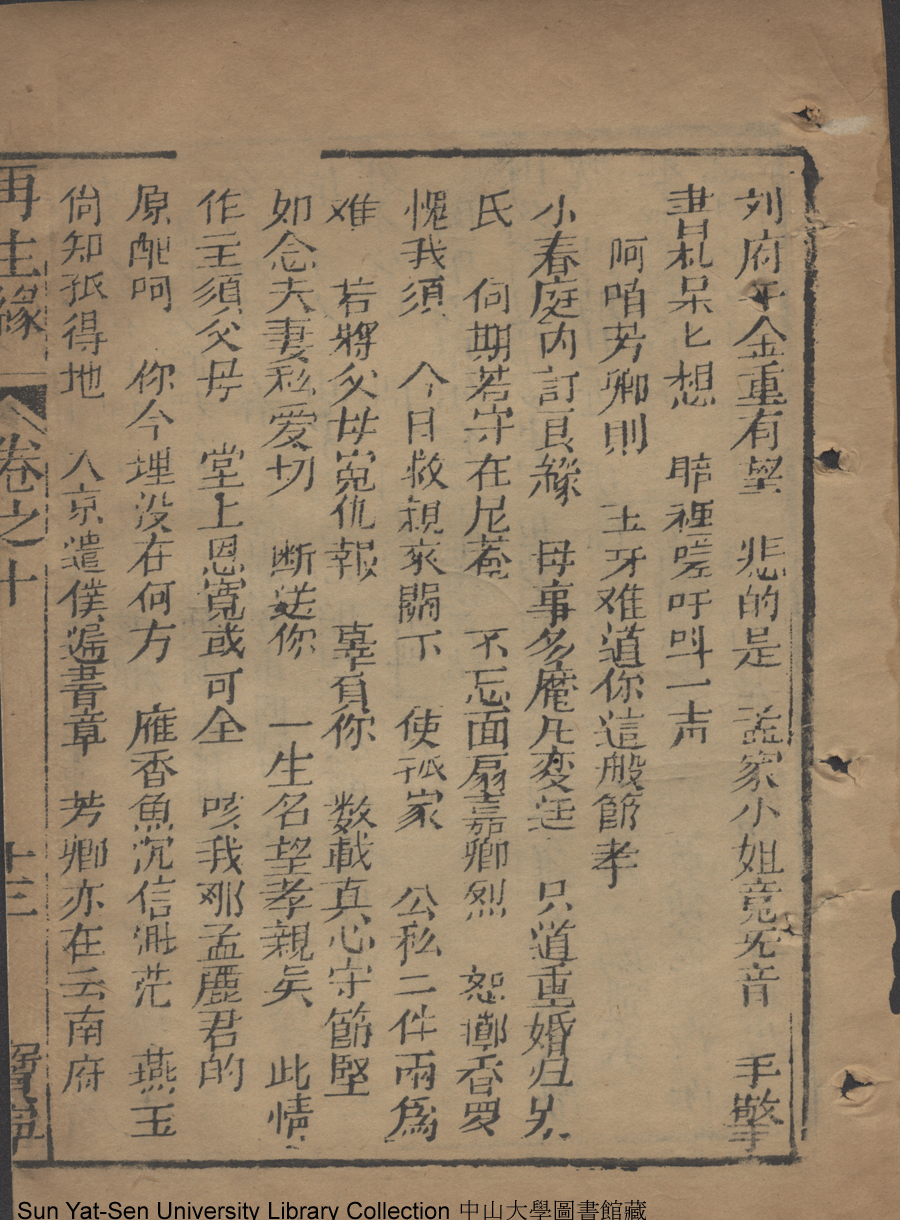 列府千金重有望　悲的是　孟家小姐竟无音　手擎
書札呆匕想　暗裡嗟吁呌一声
阿咱芳卿則　玉牙难道你這般節孝
小春庭內訂良緣　毋事多魔凢変迁　只道重婚归刘
氏　何期若守在尼菴　不忘面扇嘉卿烈　恕擲香罗
愧我須　今日救親來關下　使孤家　公私二件兩為
难　若將父母寃仇報　辜負你　数載真心守節堅
如念夫妻私爱切　断送你　一生名望孝親矣　此情
作主須父母　堂上恩寬或可全　咳我那孟麗君的
原配呵　你今埋没在何方　雁香魚沉信渺茫　燕玉
尙知孤得地　入京遣僕逓書章　芳卿亦在云南府
再生緣　卷之十　十三